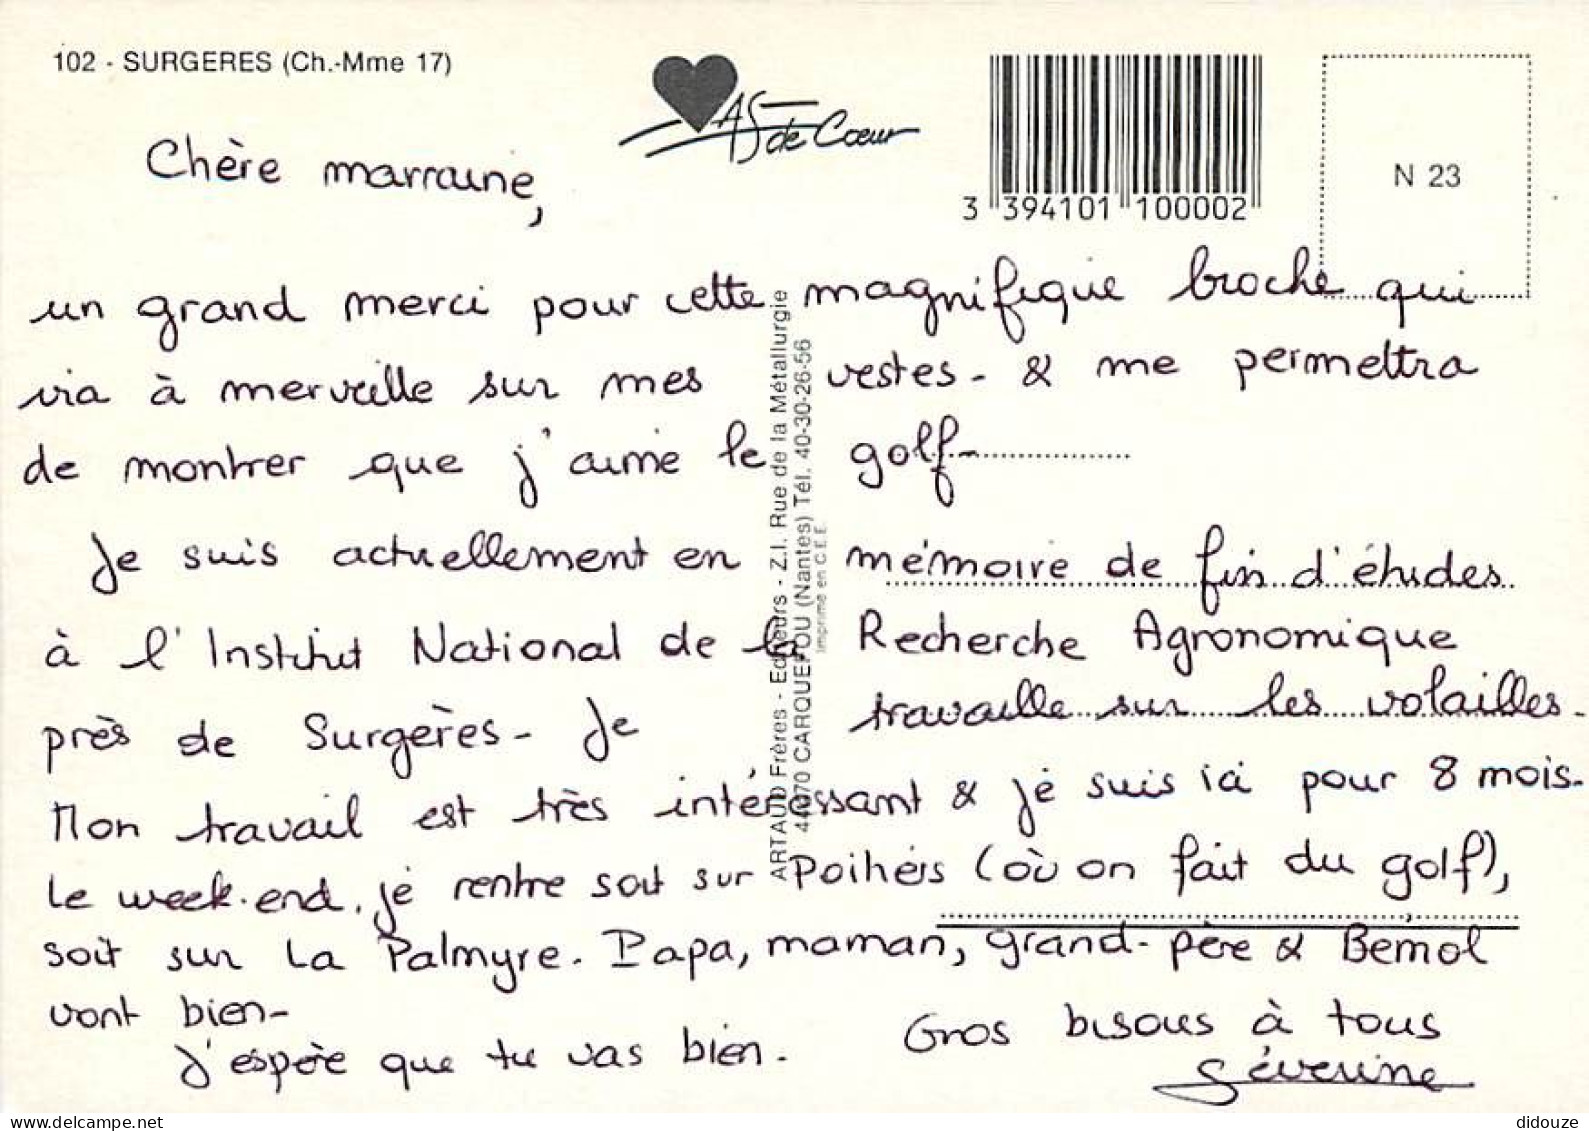 102 - SURGERES (Ch.-Mme 17)
AS de Cœur
3 394101 100002
N 23
Chère marraine,
un grand merci pour cette magnifique broche qui
ira à merveille sur mes vestes - & me permettra
de montrer que j'aime le golf -
Je suis actuellement en mémoire de fin d'études
à l'Institut National de la Recherche Agronomique
près de Surgères - Je travaille sur les volailles.
Mon travail est très intéressant & je suis ici pour 8 mois.
Le week-end, je rentre soit sur Poitiers (où on fait du golf),
soit sur La Palmyre. Papa, maman, grand-père & Bémol
vont bien -
J'espère que tu vas bien.
Gros bisous à tous
Séverine
ARTAUD Frères - Editeurs - Z.I. Rue de la Métallurgie
44470 CARQUEFOU (Nantes) Tél. 40-30-26-56
Imprimé en C.E.E.
delcampe.net
didouze